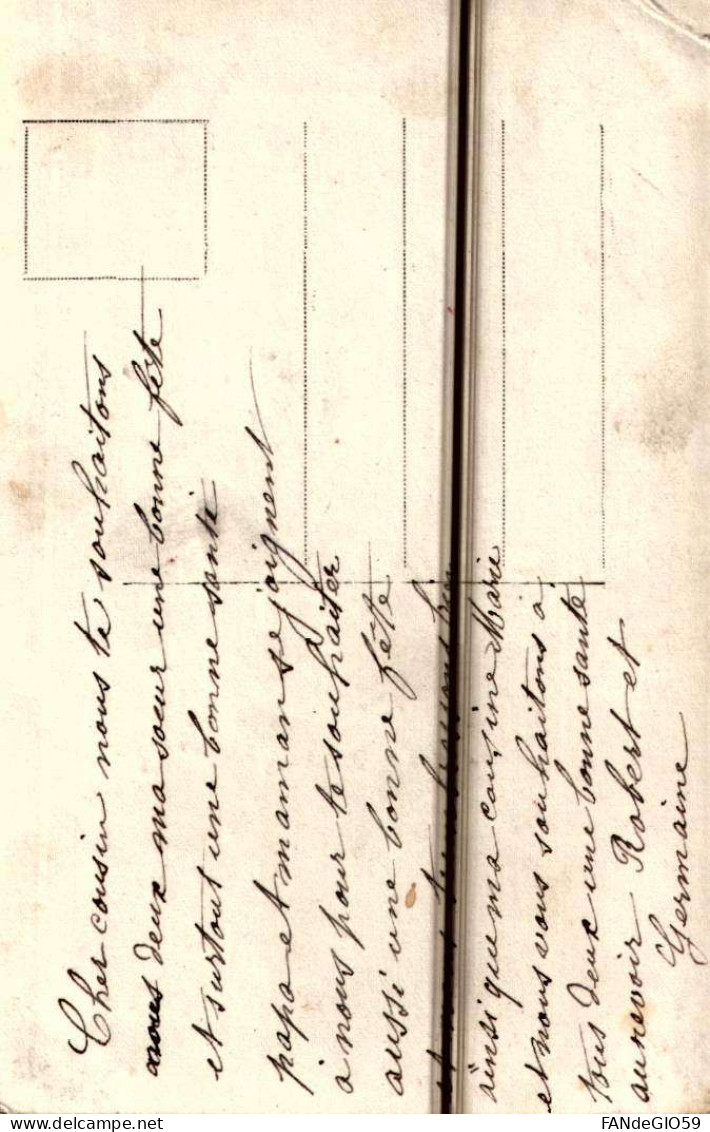 Cher cousin nous te souhaitons
nous deux ma soeur une bonne fête
et surtout une bonne sante
papa et maman se joignent
a nous pour te souhaiter
aussi une bonne fête
et nous t'embrassons bien
ainsi que ma cousine Marie
et nous vous souhaitons a
tous deux une bonne sante
aurevoir Robert et
Germaine
delcampe.net
FANdeGIO59